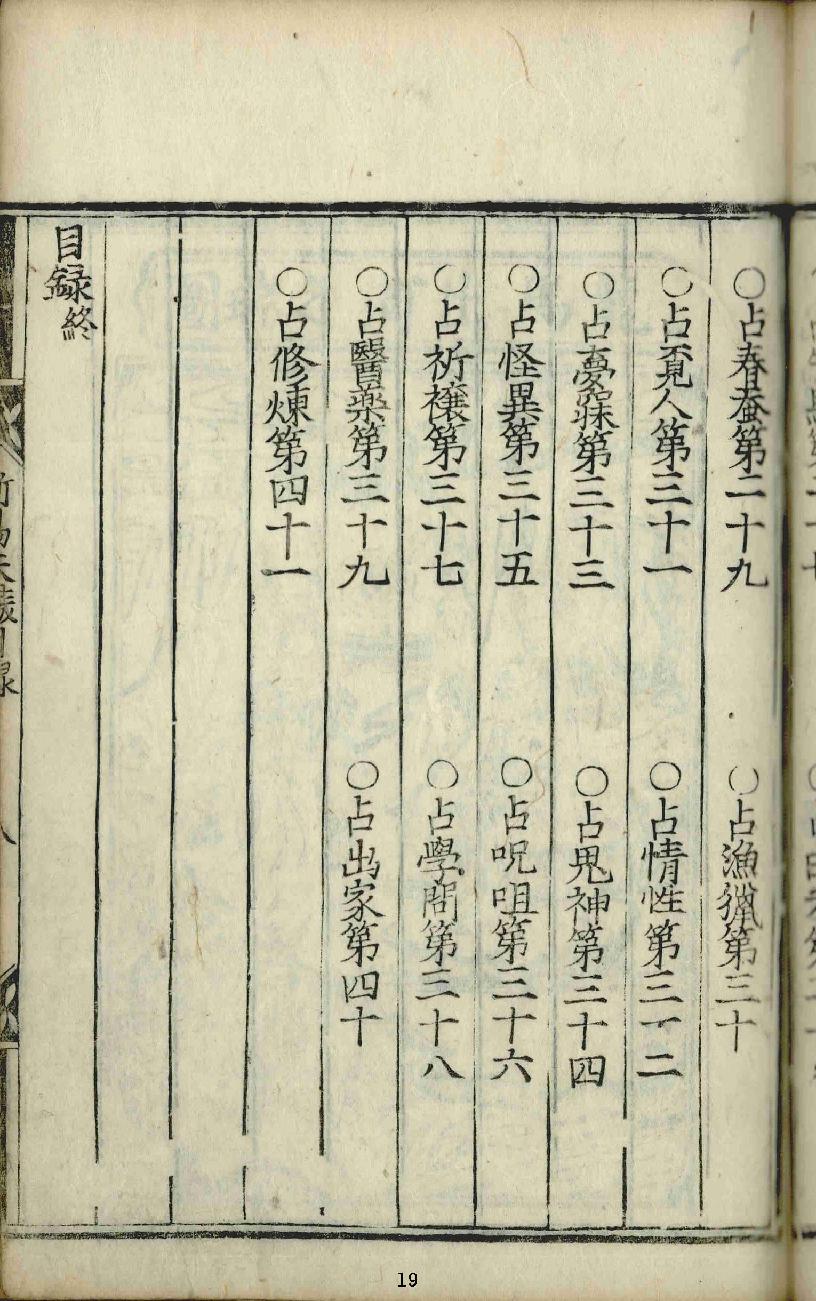 ○占春蚕第二十九　○占漁獵第三十
○占覓人第三十一　○占情性第三十二
○占夢寐第三十三　○占鬼神第三十四
○占怪異第三十五　○占呪咀第三十六
○占祈禳第三十七　○占學問第三十八
○占醫藥第三十九　○占出家第四十
○占修煉第四十一
目録終
八
19